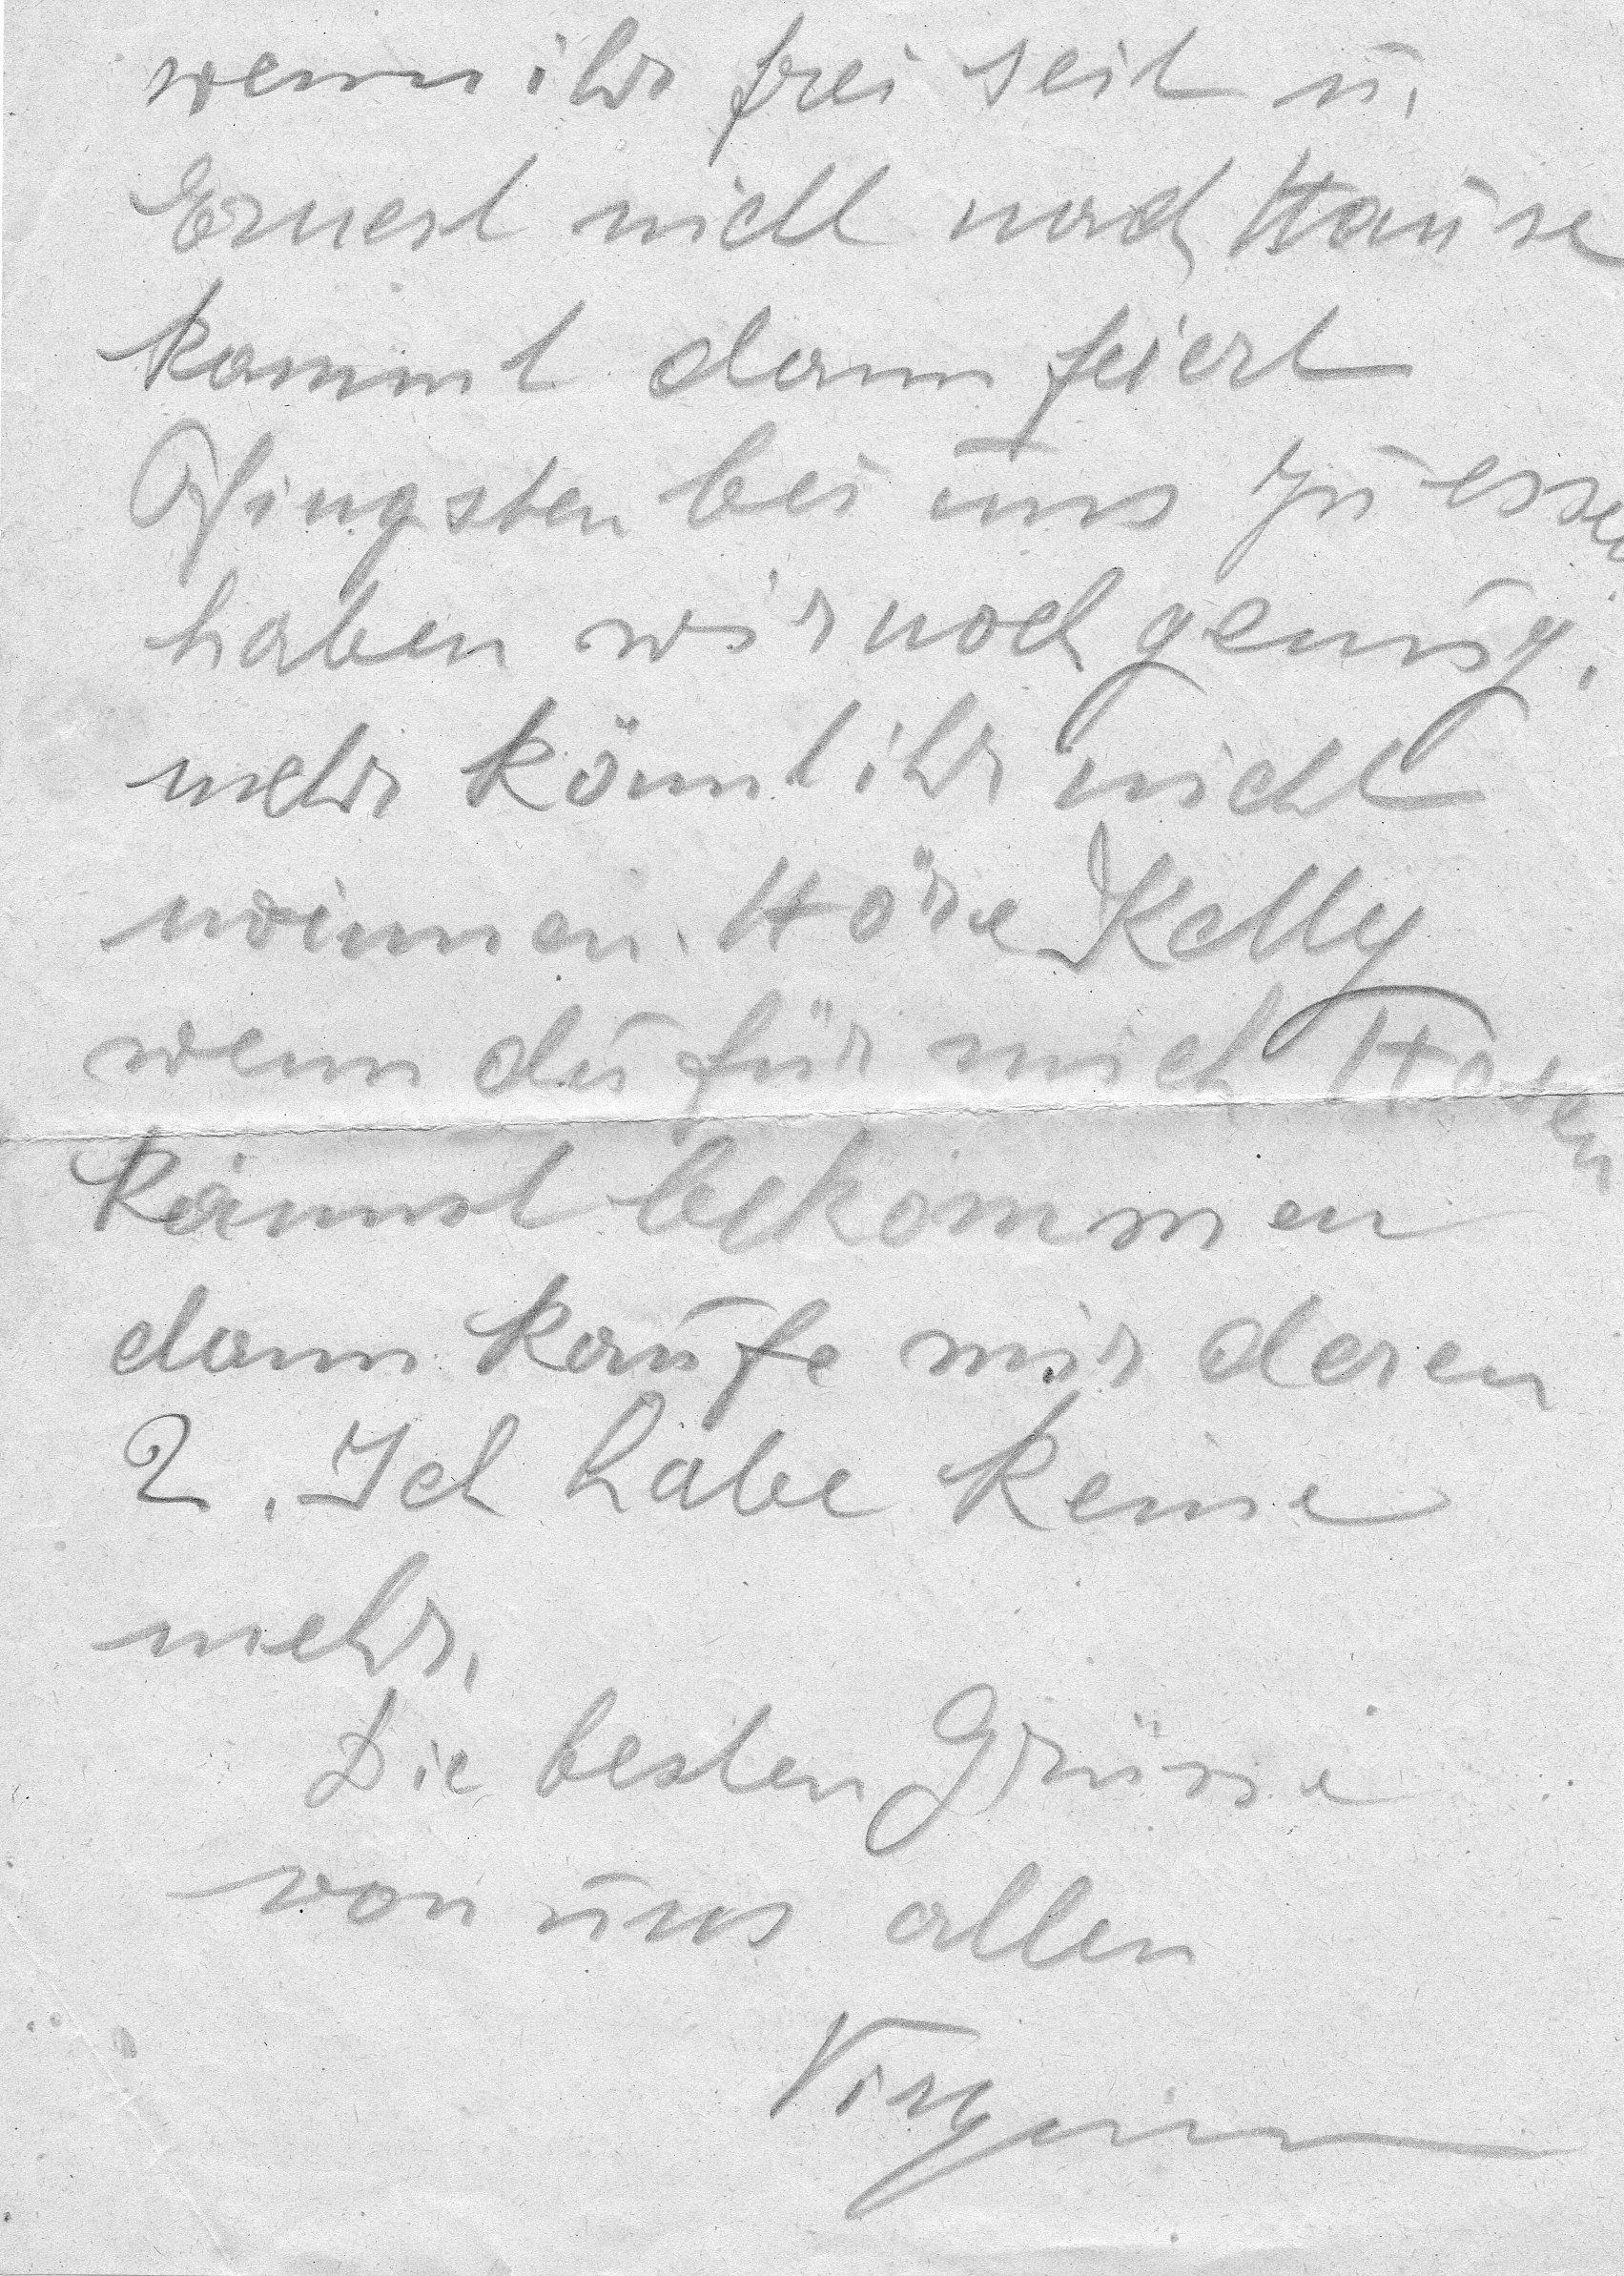 wenn ihr frei seit u.
Ernest nicht nach Hause
kommt dann feiert
Pfingsten bei uns zu essen
haben wir noch genug.
mehr könnt ihr nicht
winnen. Höre Ketty
wenn du für mich Hosen
kannst bekommen
dann kaufe mir deren
2. Ich habe keine
mehr.
Die besten Grüsse
von uns allen